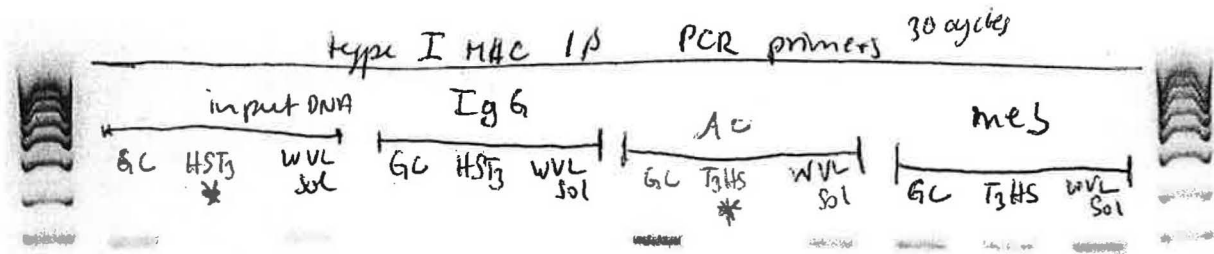 type I MHC 1β PCR primers 30 cycles
input DNA IgG Ac me3
GC HST3 WVL Sol GC HST3 WVL Sol GC T3HS WVL Sol GC T3HS WVL Sol
* *